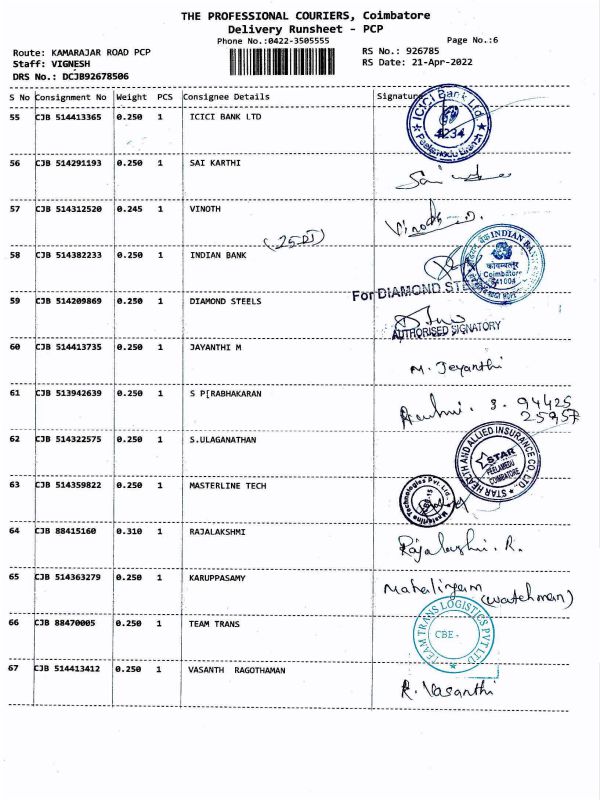 THE PROFESSIONAL COURIERS, Coimbatore
Delivery Runsheet - PCP
Phone No.:0422-3505555
Page No.:6
Route: KAMARAJAR ROAD PCP
RS No.: 926785
Staff: VIGNESH
RS Date: 21-Apr-2022
DRS No.: DCJB92678506
S No Consignment No Weight PCS Consignee Details Signature
55 CJB 514413365 0.250 1 ICICI BANK LTD
ICICI Bank Ltd.
4234
Peelamedu Branch
56 CJB 514291193 0.250 1 SAI KARTHI
Sai
57 CJB 514312520 0.245 1 VINOTH
Vinoth
58 CJB 514382233 0.250 1 INDIAN BANK
INDIAN BANK
कोयम्बत्तूर
Coimbatore
641004
59 CJB 514209869 0.250 1 DIAMOND STEELS
For DIAMOND STE
AUTHORISED SIGNATORY
60 CJB 514413735 0.250 1 JAYANTHI M
M. Jeyanthi
61 CJB 513942639 0.250 1 S P[RABHAKARAN
S. 94425
25957
62 CJB 514322575 0.250 1 S.ULAGANATHAN
STAR HEALTH AND ALLIED INSURANCE CO LTD.
STAR
PEELAMEDU
COIMBATORE
63 CJB 514359822 0.250 1 MASTERLINE TECH
Masterline Technologies Pvt. Ltd.
64 CJB 88415160 0.310 1 RAJALAKSHMI
Rajalakshmi. R.
65 CJB 514363279 0.250 1 KARUPPASAMY
Mahalingam
(watchman)
66 CJB 88470005 0.250 1 TEAM TRANS
TEAM TRANS LOGISTICS PVT LTD
CBE -
67 CJB 514413412 0.250 1 VASANTH RAGOTHAMAN
R. Vasanthi